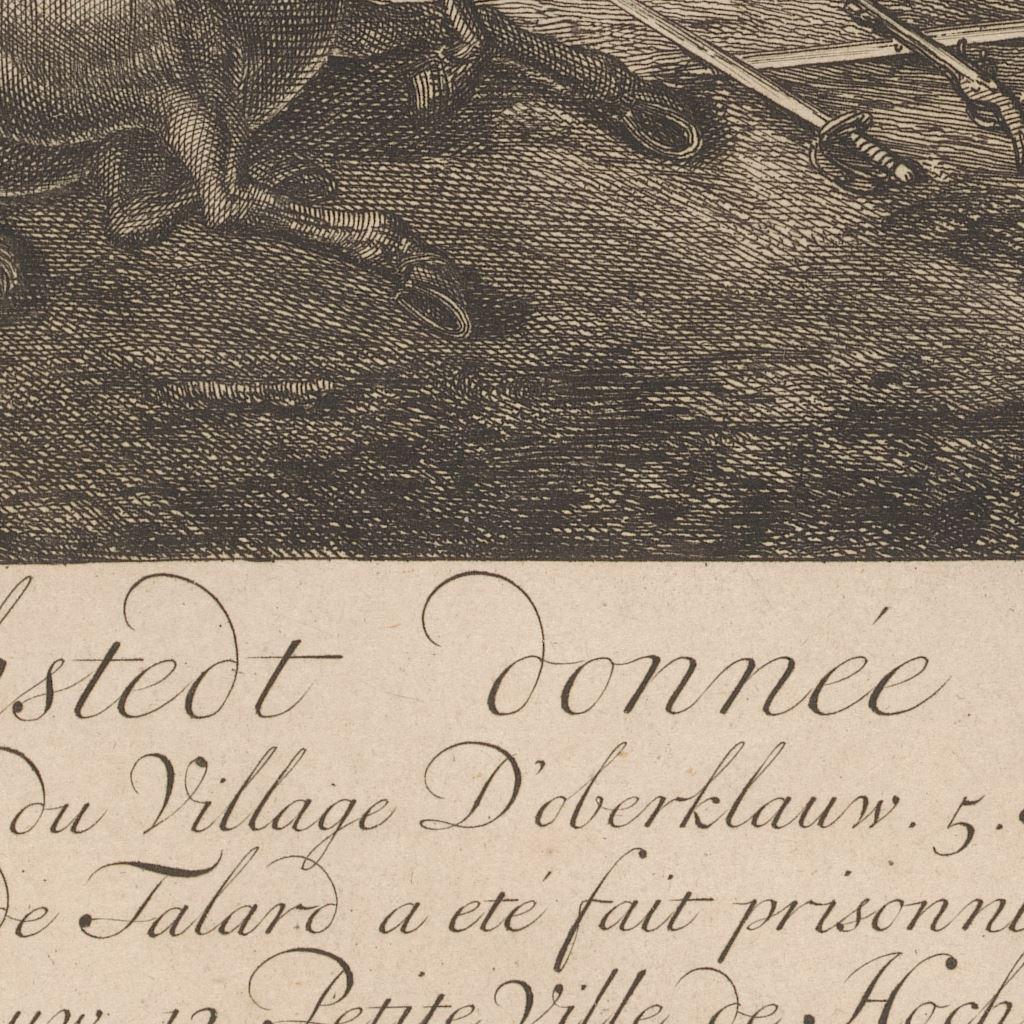 hstedt donnée
du Village D'oberklauw. 5.
de Talard a eté fait prisonni
uw. 12 Petite Ville de Hoch